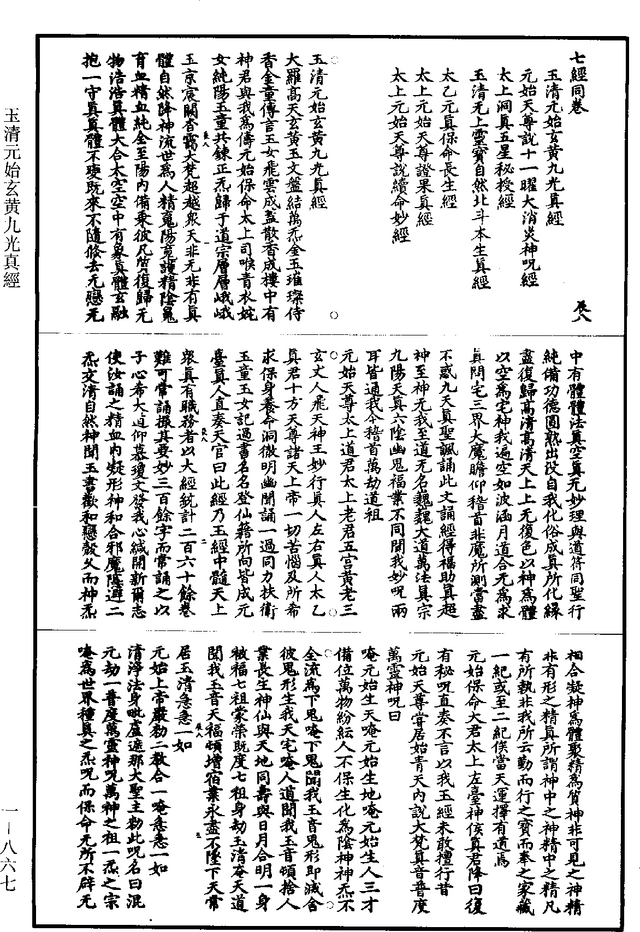 七經同卷
玉清元始玄黃九光真經
元始天尊說十一曜大消災神呪經
太上洞真五星秘授經
玉清无上靈寶自然北斗本生真經
太乙元真保命長生經
太上元始天尊證果真經
太上元始天尊說續命妙經
辰八
玉清元始玄黃九光真經
大羅高天玄黃玉文盤結萬炁金玉璀璨侍
香金童傳言玉女飛雲成蓋散香成樓中有
神君與我為儔元始保命太上司喉青衣姹
女純陽玉童共鍊正炁歸于道宗層層峨峨
玉京宸闕杳靄大梵超越衆天非无非有真
體自然降神流世為人精寃陽寃護精陰寃
育血精血純全至陽內備乘彼凡質復歸元
物浩浩真體大合太空空中有象真體玄融
抱一守真真體不變既來不隨修去无戀无
中有體體法真空真元妙理與道脗同聖行
純備功德圓熟出沒自我化俗成真所化緣
盡復歸高清高清天上上无復色以神為體
以空為宅神我遍空如波涵月道合无為求
真問宅三界大魔瞻仰稽首非魔所測當盡
不惑九天真聖諷誦此文誦經得福助真超
神至神元我至道无名巍巍大道萬法真宗
九陽天真六陰幽鬼福業不同聞我妙呪兩
耳皆通我今稽首萬劫道祖
元始天尊太上道君太上老君五宮黃老三
玄丈人飛天神王妙行真人左右真人太乙
真君十方天尊諸天上帝一切苦惱及所希
求保身養命洞微明幽聞誦一過同力扶衛
玉童玉女記過書名名登仙籍所向皆成元
臺真人直奏天官曰此經乃玉經中髓天上
衆真有職務者以大經統計二百六十餘卷
難可常誦撮其要妙三百餘字而常誦之以
子心希大道仰慕瓊文發我心緘開新爾志
使汝誦之精血內凝形神和合邪魔隱遯二
炁交清自然神聞玉書歡和戀殼父而神炁
相合凝神為體聚精為質神非可見之神精
非有形之精真所謂神中之神精中之精凡
有所執非我所云勤而行之寶而奉之家藏
一紀或至二紀俟當天運擇有道焉
元始保命大君太上左臺神侅真君降曰復
有秘呪直奏不言以我玉經未敢檀行昔
元始天尊嘗居始青天內說大梵真音普度
萬靈神呪曰
唵元始生天唵元始生地唵元始生人三才
備位萬物紛紜人不保生化為陰神神炁不
全流為下鬼唵下鬼聞我玉音鬼形即滅舍
彼鬼形生我天宅唵人道聞我玉音頓捨人
業長生神仙與天地同壽與日月合明一身
被福七祖蒙榮既度七祖身劫玉清奄天道
聞我玉音天福頓增宿業永盡不墜下天常
居玉清急急一如
元始上帝嚴勑二教合一唵急急一如
清淨法身毗盧遮那大聖主勑此呪名曰混
元劫一普度萬靈神呪萬神之祖一炁之宗
唵為世界種真之炁呪而保命无所不辟无
玉清元始玄黃九光真經
一—八六七